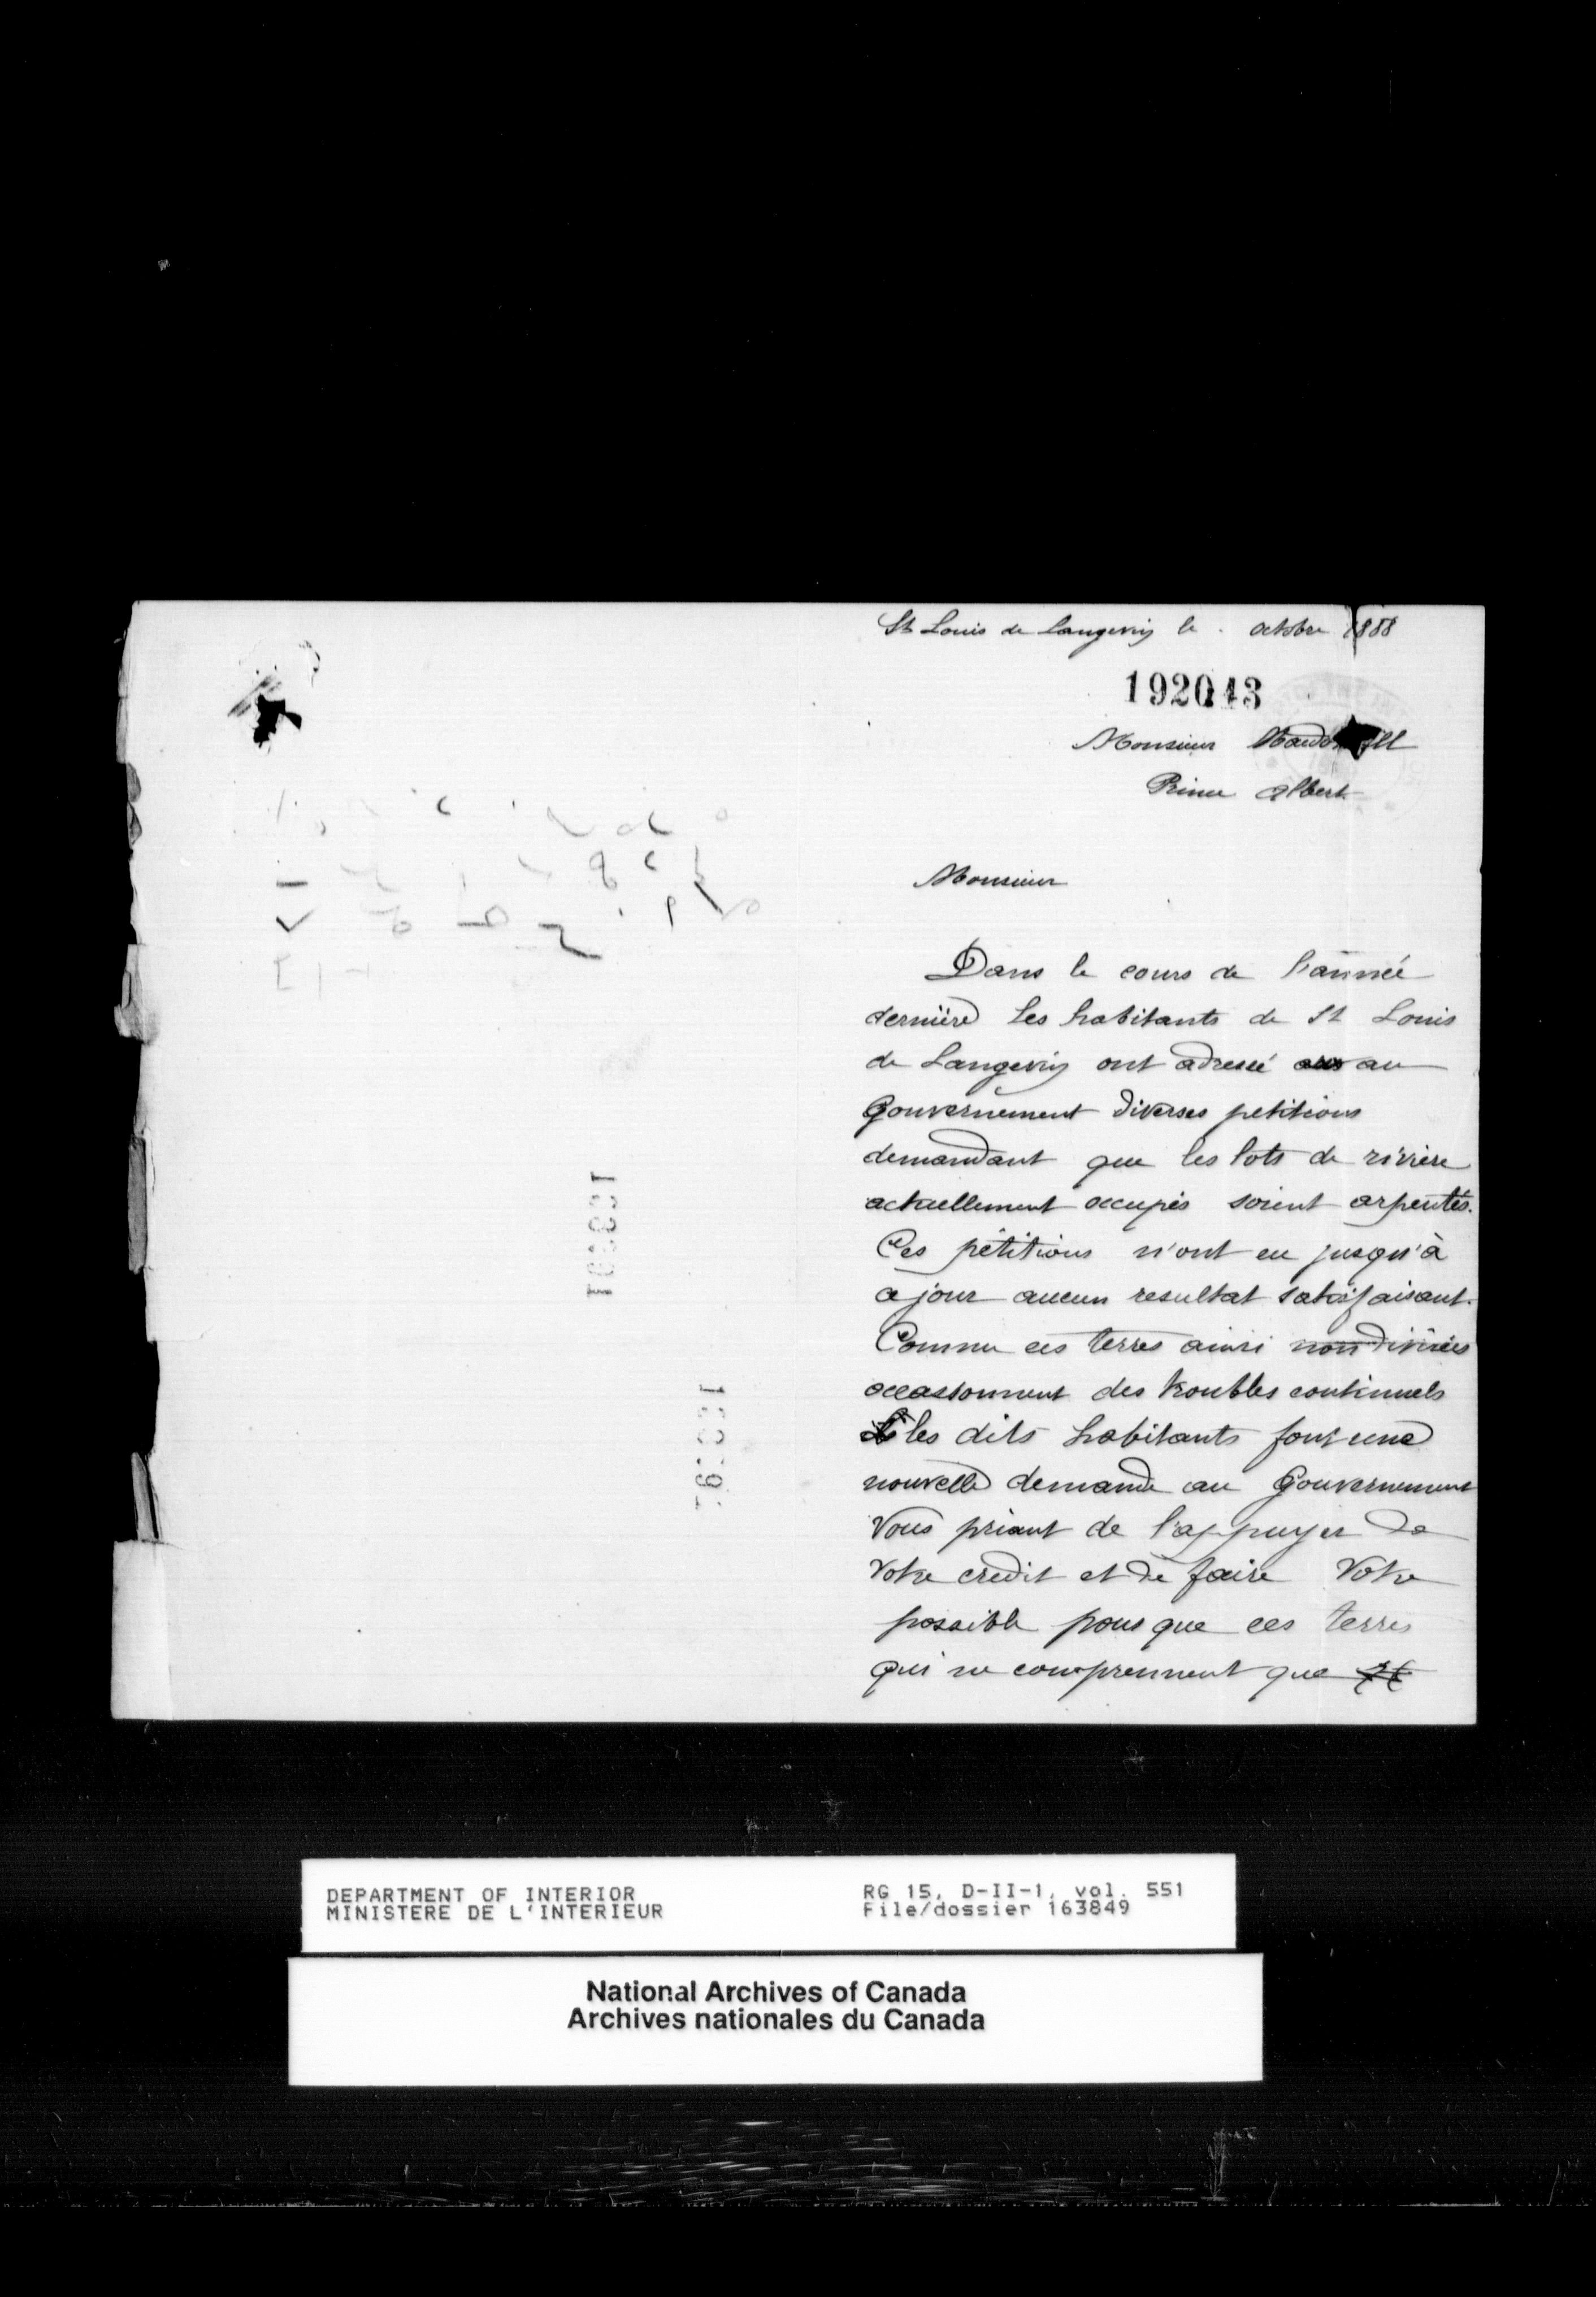 St Louis de Langevin le . octobre 1888
192043
Monsieur
Prince Albert
Monsieur
Dans le cours de l'année
dernière les habitants de St Louis
de Langevin ont adressé au
Gouvernement diverses petitions
demandant que les lots de rivière
actuellement occupés soient arpentés.
Ces pétitions n'ont eu jusqu'à
ce jour aucun resultat satisfaisant.
Comme ces terres ainsi non divisées
occassonnent des troubles continuels
les dits habitants font une
nouvelle demande au Gouvernement
Vous priant de l'appuyer de
Votre credit et de faire Votre
possible pour que ces terres
qui ne comprennent que
DEPARTMENT OF INTERIOR
MINISTERE DE L'INTERIEUR
RG 15, D-II-1, vol. 551
File/dossier 163849
National Archives of Canada
Archives nationales du Canada